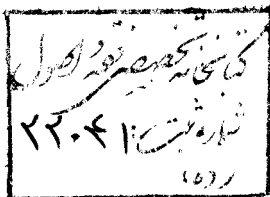 کتابخانه تخصصی فقه و اصول
شماره ثبت: ۲۲۰۴۱
رده: